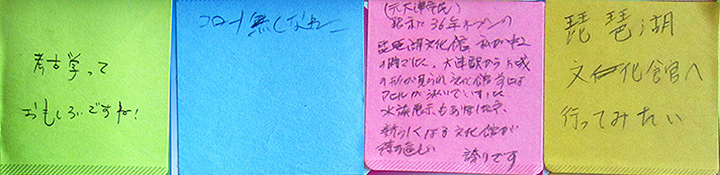 考古学って
おもしろいですね!
コロナ無くなれー
(元大津市民)
昭和36年オープンの
琵琶湖文化館 私が中2
の時でした。大津駅から お城
の形が見られ 文化館 前には
アヒルが泳いでいました
水族展示もあ
新しくなる文化館が
待ち遠しい 誇りです
琵琶湖
文化館へ
行ってみたい